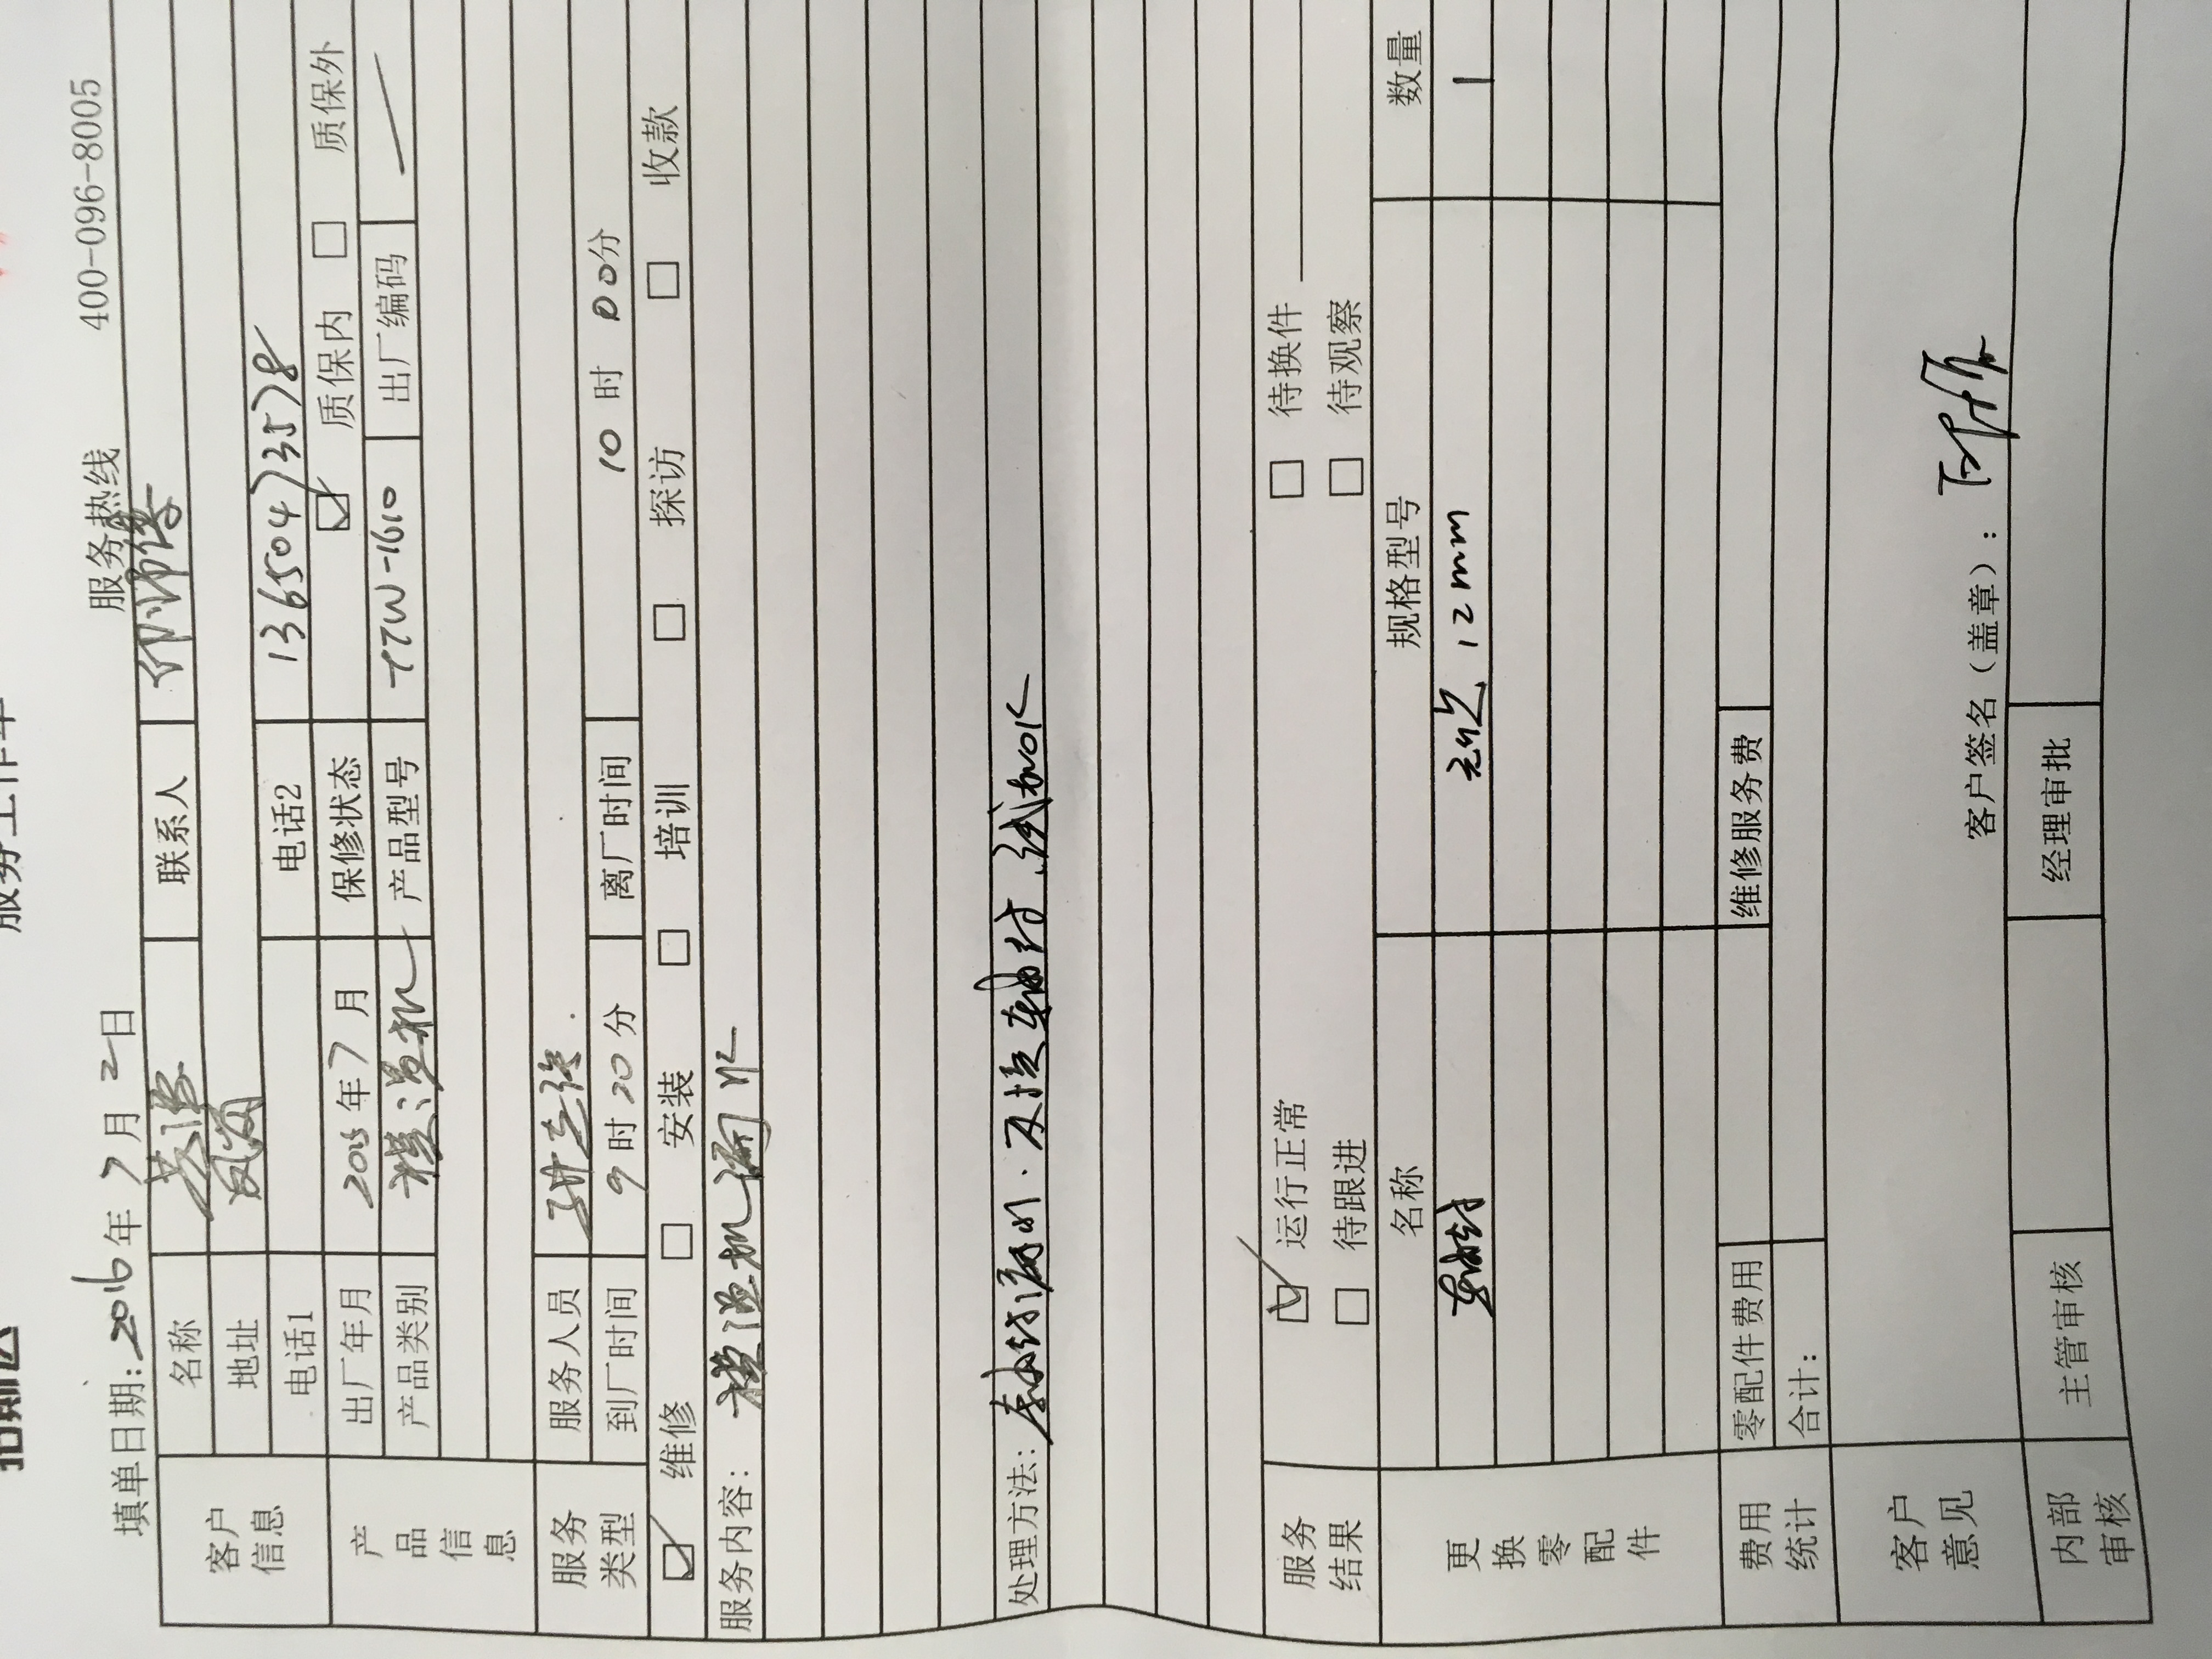 服务工作单
填单日期:2016年7月2日 服务热线 400-096-8005
客户信息 名称 联系人 师傅
地址
电话1 电话2 13650473578
产品信息 出厂年月 2015年7月 保修状态 ☑ 质保内 □ 质保外
产品类别 模温机 产品型号 TTW-1610 出厂编码 /
服务类型 服务人员 到厂时间 9时20分 离厂时间 10时00分
☑ 维修 □ 安装 □ 培训 □ 探访 □ 收款
服务内容: 模温机漏水
处理方法: 轴封漏水.更换轴封.试机OK
服务结果 ☑ 运行正常 □ 待换件
□ 待跟进 □ 待观察
更换零配件 名称 规格型号 数量
轴封 12mm 1
费用统计 零配件费用 维修服务费
合计:
客户意见 客户签名(盖章):
内部审核 主管审核 经理审批